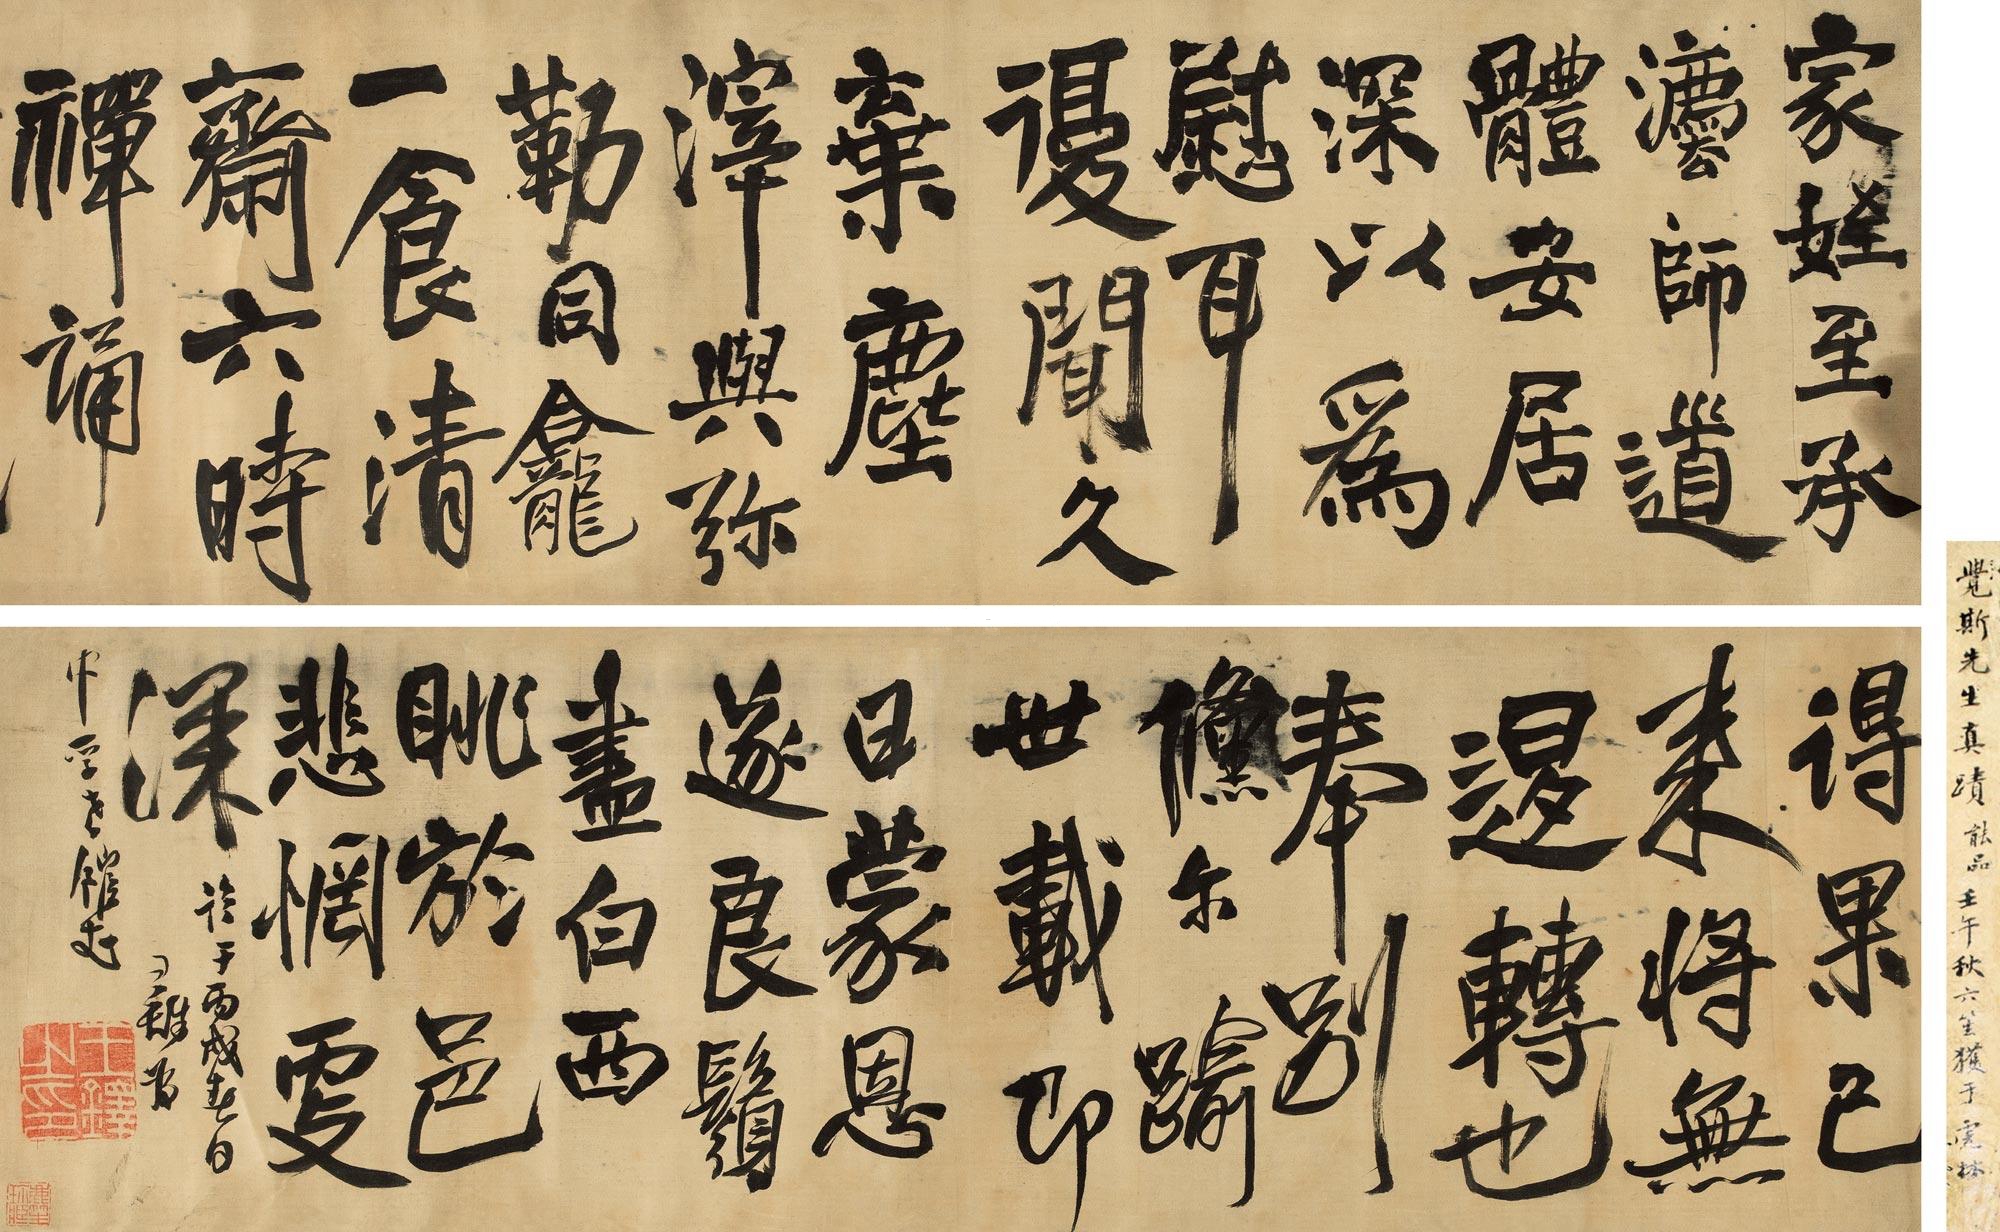 家姪至承
灋師道
體安居
深以爲
慰耳
復聞久
棄塵
滓與弥
勒同龕
一食清
齋六時
禪誦
得果已
來將無
退轉也
奉別
儵尔踰
世載即
日蒙恩
遂良鬚
盡白西
眺於邑
悲惘處
深
于丙戌春日
王鐸之印
覺斯先生真蹟 能品 壬午秋六笙獲于虎林